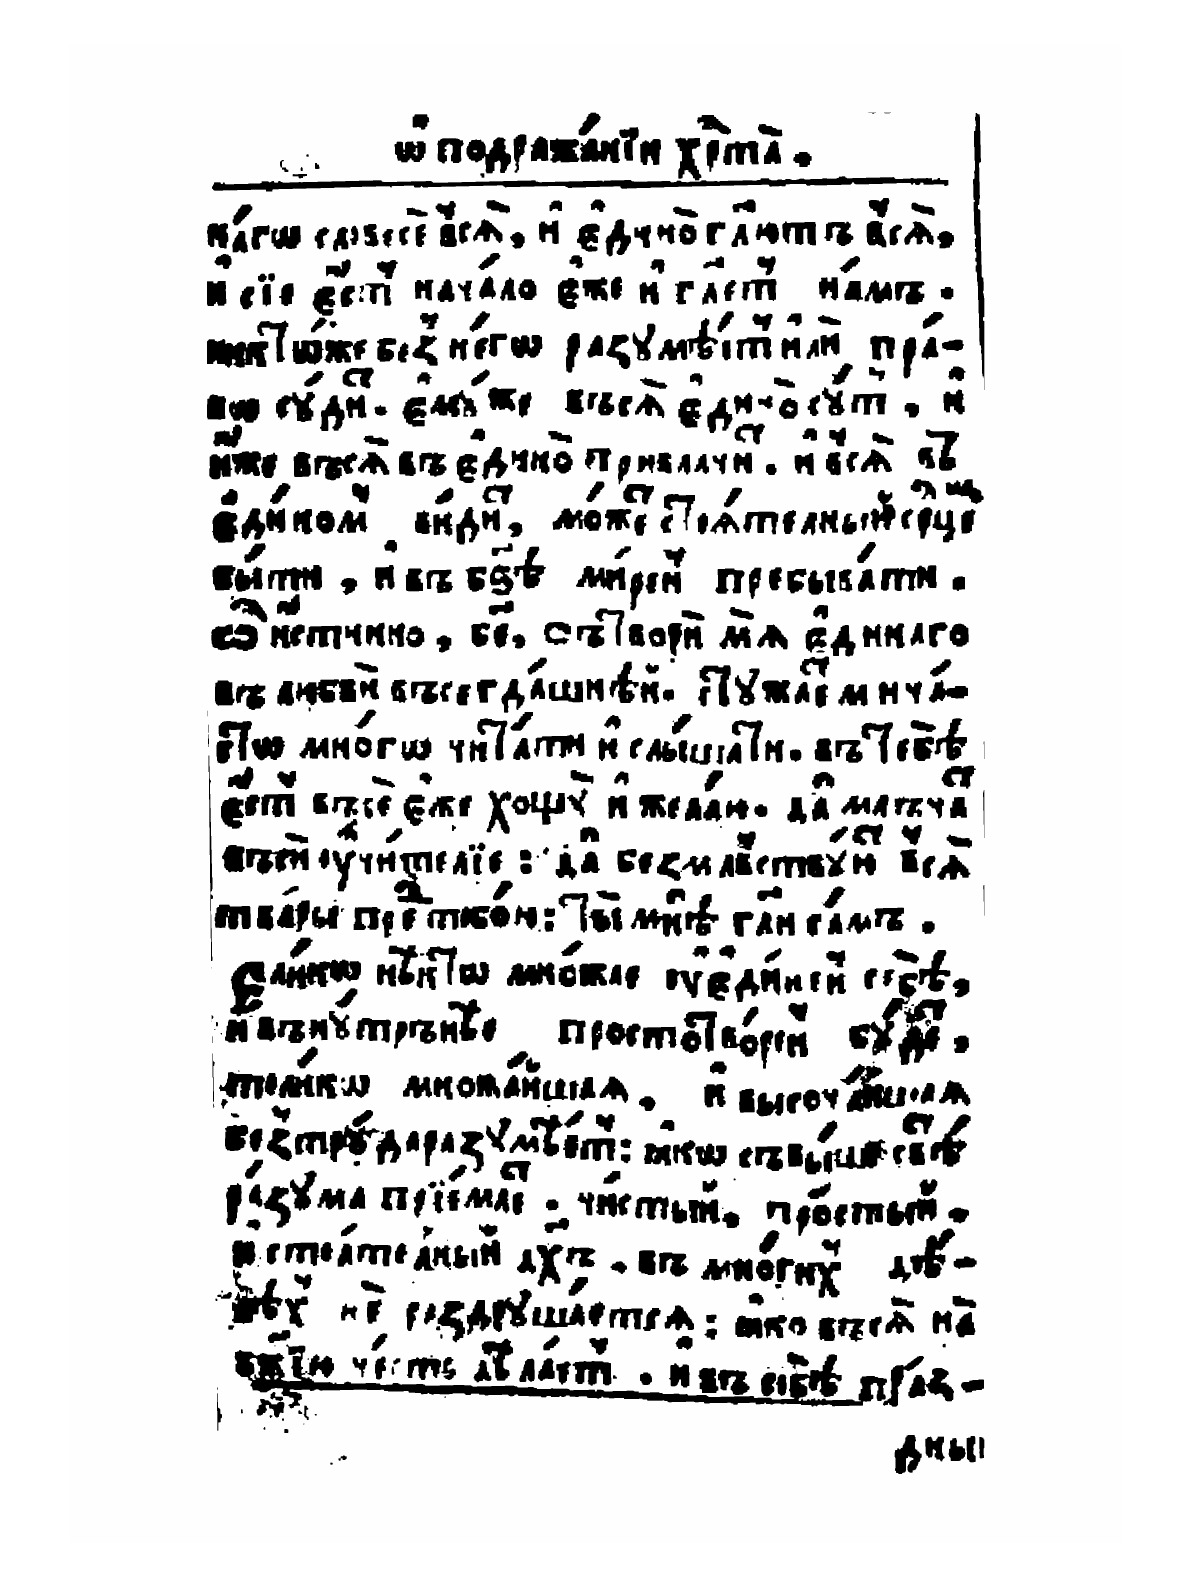 Ѡ҆ подража́нїи хрⷭ҇та̀.
на́гѡ словесѐ всѧ̑, и҆ є҆ди́но гл҃ютъ всѧ̑,
и҆ сїѐ є҆́сть нача́ло є҆́же и҆ гл҃етъ на́мъ.
никто́же без̾ негѡ̀ разумѣ́етъ и҆лѝ пра́-
вѡ сꙋ́дитъ. є҆мꙋ́же всѧ̑ є҆ди́но сꙋ́ть, и҆
и҆́же всѧ̑ въ є҆ди́но привлачи́тъ. и҆ всѧ̑ въ
є҆ди́номъ ви́дитъ, мо́жетъ стоѧ́телный се́рдцемъ
бы́ти, и҆ въ бз҃ѣ ми́ренъ пребыва́ти.
Ѽ и҆́стинно, бж҃е, сътворѝ мѧ̀ є҆ди́наго
въ любвѝ въсегда́шнѣй. Стꙋжа́етъ мѝ ча́-
стѡ мно́гѡ чита́ти и҆ слы́шати. въ тебѣ̀
є҆́сть всѐ є҆́же хощꙋ̀ и҆ жела́ю. да̀ молча́тъ
всѝ ᲂу҆чи́телїе: да̀ безмо́лствꙋютъ всѧ̑
тва́ри пре́д тобо́ю: ты̀ мнѣ̀ гл҃и са́мъ.
Є҆ли́кѡ нѣ́ктѡ мно́жае ᲂу҆едине́нъ себѣ̀,
и҆ внꙋ́трънѣе простотворе́нъ бꙋ́детъ,
толи́кѡ множа́йшаѧ. и҆ высоча́йшаѧ
без̾ трꙋда̀ разꙋмѣ́етъ: ꙗ҆́кѡ съвы́ше свѣ́тъ
ра́зꙋма прїе́млетъ. чи́стый, про́стый,
и҆ стоѧ́телный дꙋ́хъ. въ мно́гихъ дѣ́-
лѣхъ не раздрꙋша́етсѧ: ꙗ҆́ко всѧ̑ на̀
бж҃їю че́сть дѣ́лаетъ. и҆ въ себѣ̀ пра́з-
дный